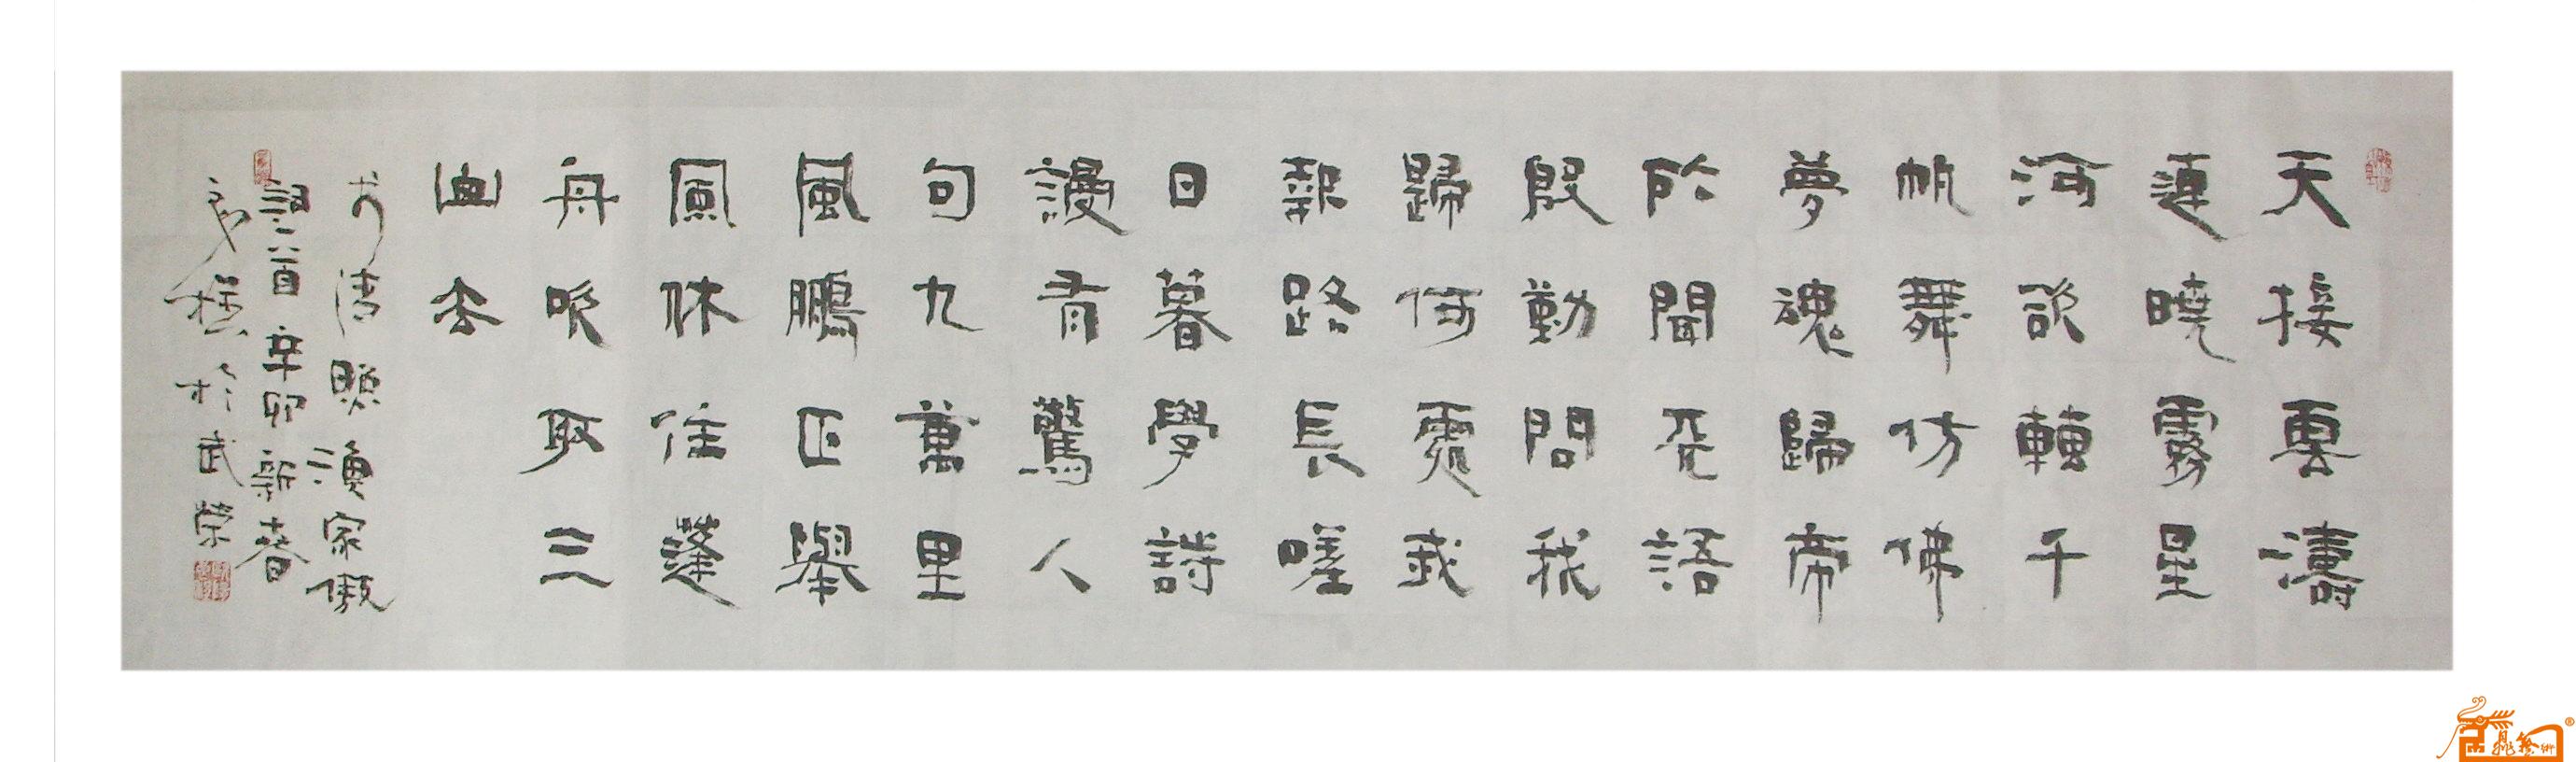 天接雲濤
連曉霧星
河欲轉千
帆舞仿佛
夢魂歸帝
所聞天語
殷勤問我
歸何處我
報路長嗟
日暮學詩
謾有驚人
句九萬里
風鵬正舉
風休住蓬
舟吹取三
山去
李清照漁家傲
詞一首辛卯新春
於武榮